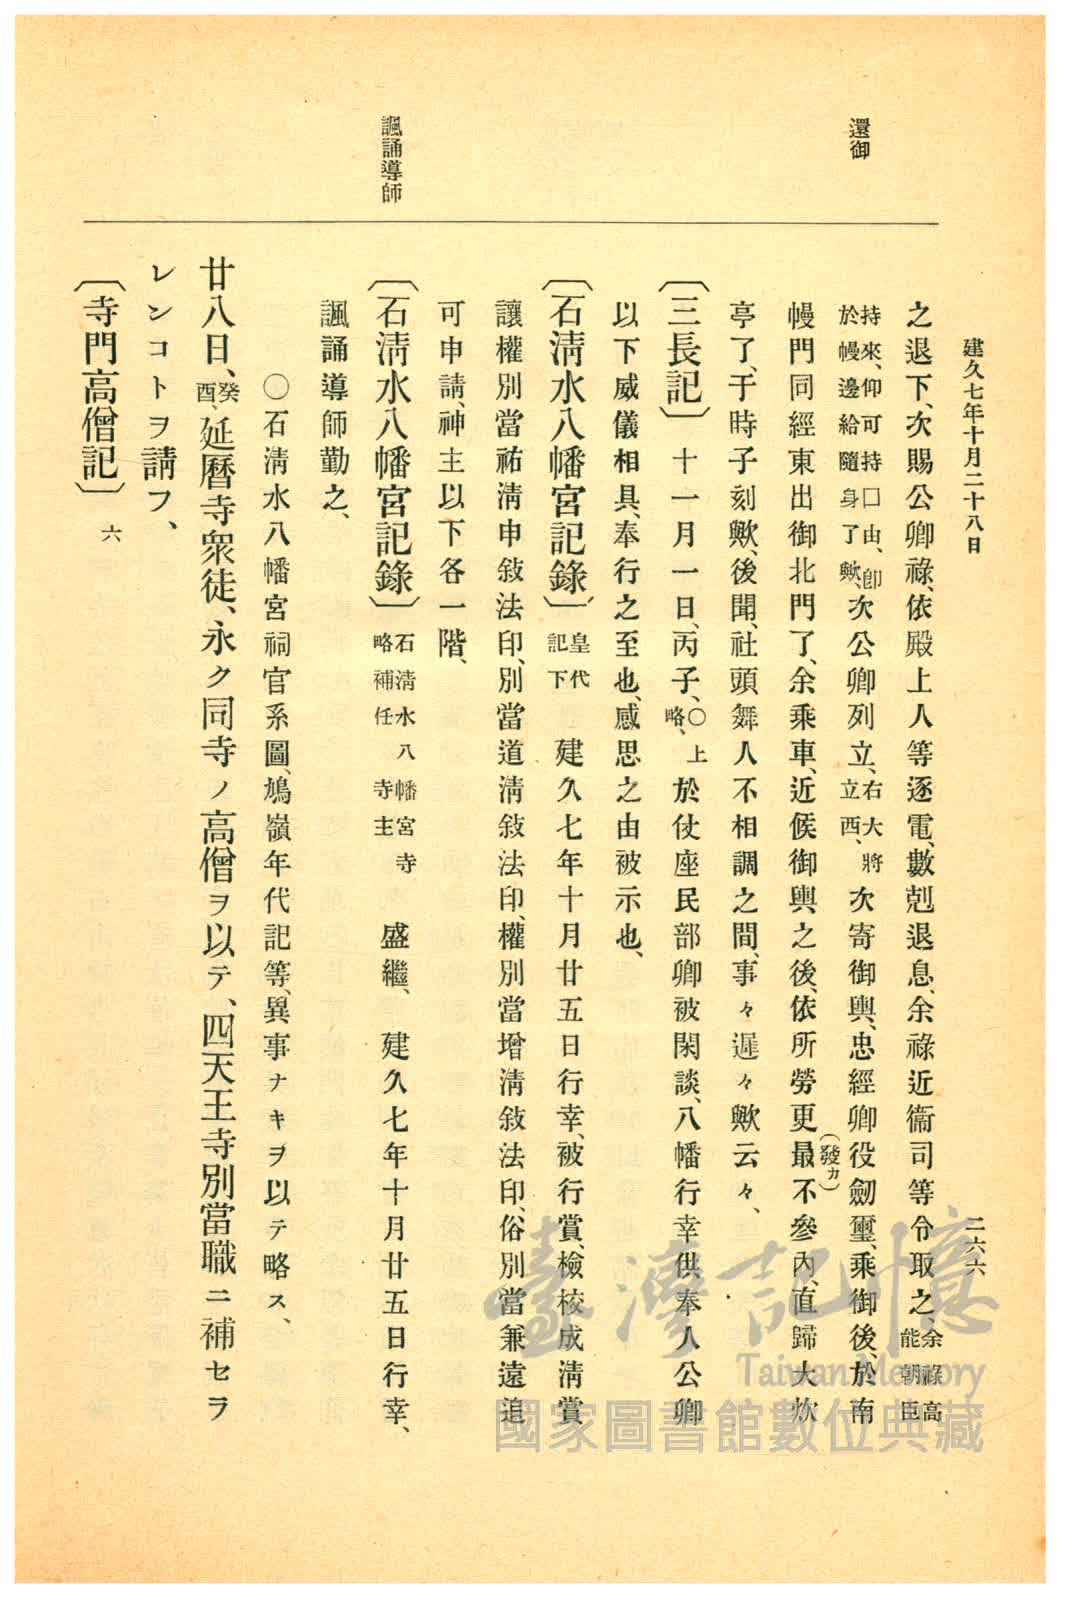 建久七年十月二十八日
二六六
還御
諷誦導師
之退下、次賜公卿祿、依殿上人等逐電、數剋退息、余祿近衞司等令取之余祿高能朝臣
持來、仰可持囗由、卽於幔邊給隨身了歟、次公卿列立、右大將立西、次寄御輿、忠經卿役劔璽、乘御後、於南
幔門同經東出御北門了、余乘車、近候御輿之後、依所勞更最(發カ)不參內、直歸大炊
亭了、于時子刻歟、後聞、社頭舞人不相調之間、事々遲々歟云々、
〔三長記〕 十一月一日、丙子、〇上略、於仗座民部卿被閑談、八幡行幸供奉人公卿
以下威儀相具、奉行之至也、感思之由被示也、
〔石淸水八幡宮記錄〕皇代記下 建久七年十月廿五日行幸、被行賞、檢校成淸賞
讓權別當祐淸申敍法印、別當道淸敍法印、權別當增淸敍法印、俗別當兼遠追
可申請、神主以下各一階、
〔石淸水八幡宮記錄〕石淸水八幡宮寺略補任 寺主 盛繼、 建久七年十月廿五日行幸、
諷誦導師勤之、
〇石淸水八幡宮祠官系圖、鳩嶺年代記等、異事ナキヲ以テ略ス、
廿八日、癸酉、延曆寺衆徒、永ク同寺ノ高僧ヲ以テ、四天王寺別當職ニ補セラ
レンコトヲ請フ、
〔寺門高僧記〕六
臺灣記憶
Taiwan Memory
國家圖書館數位典藏